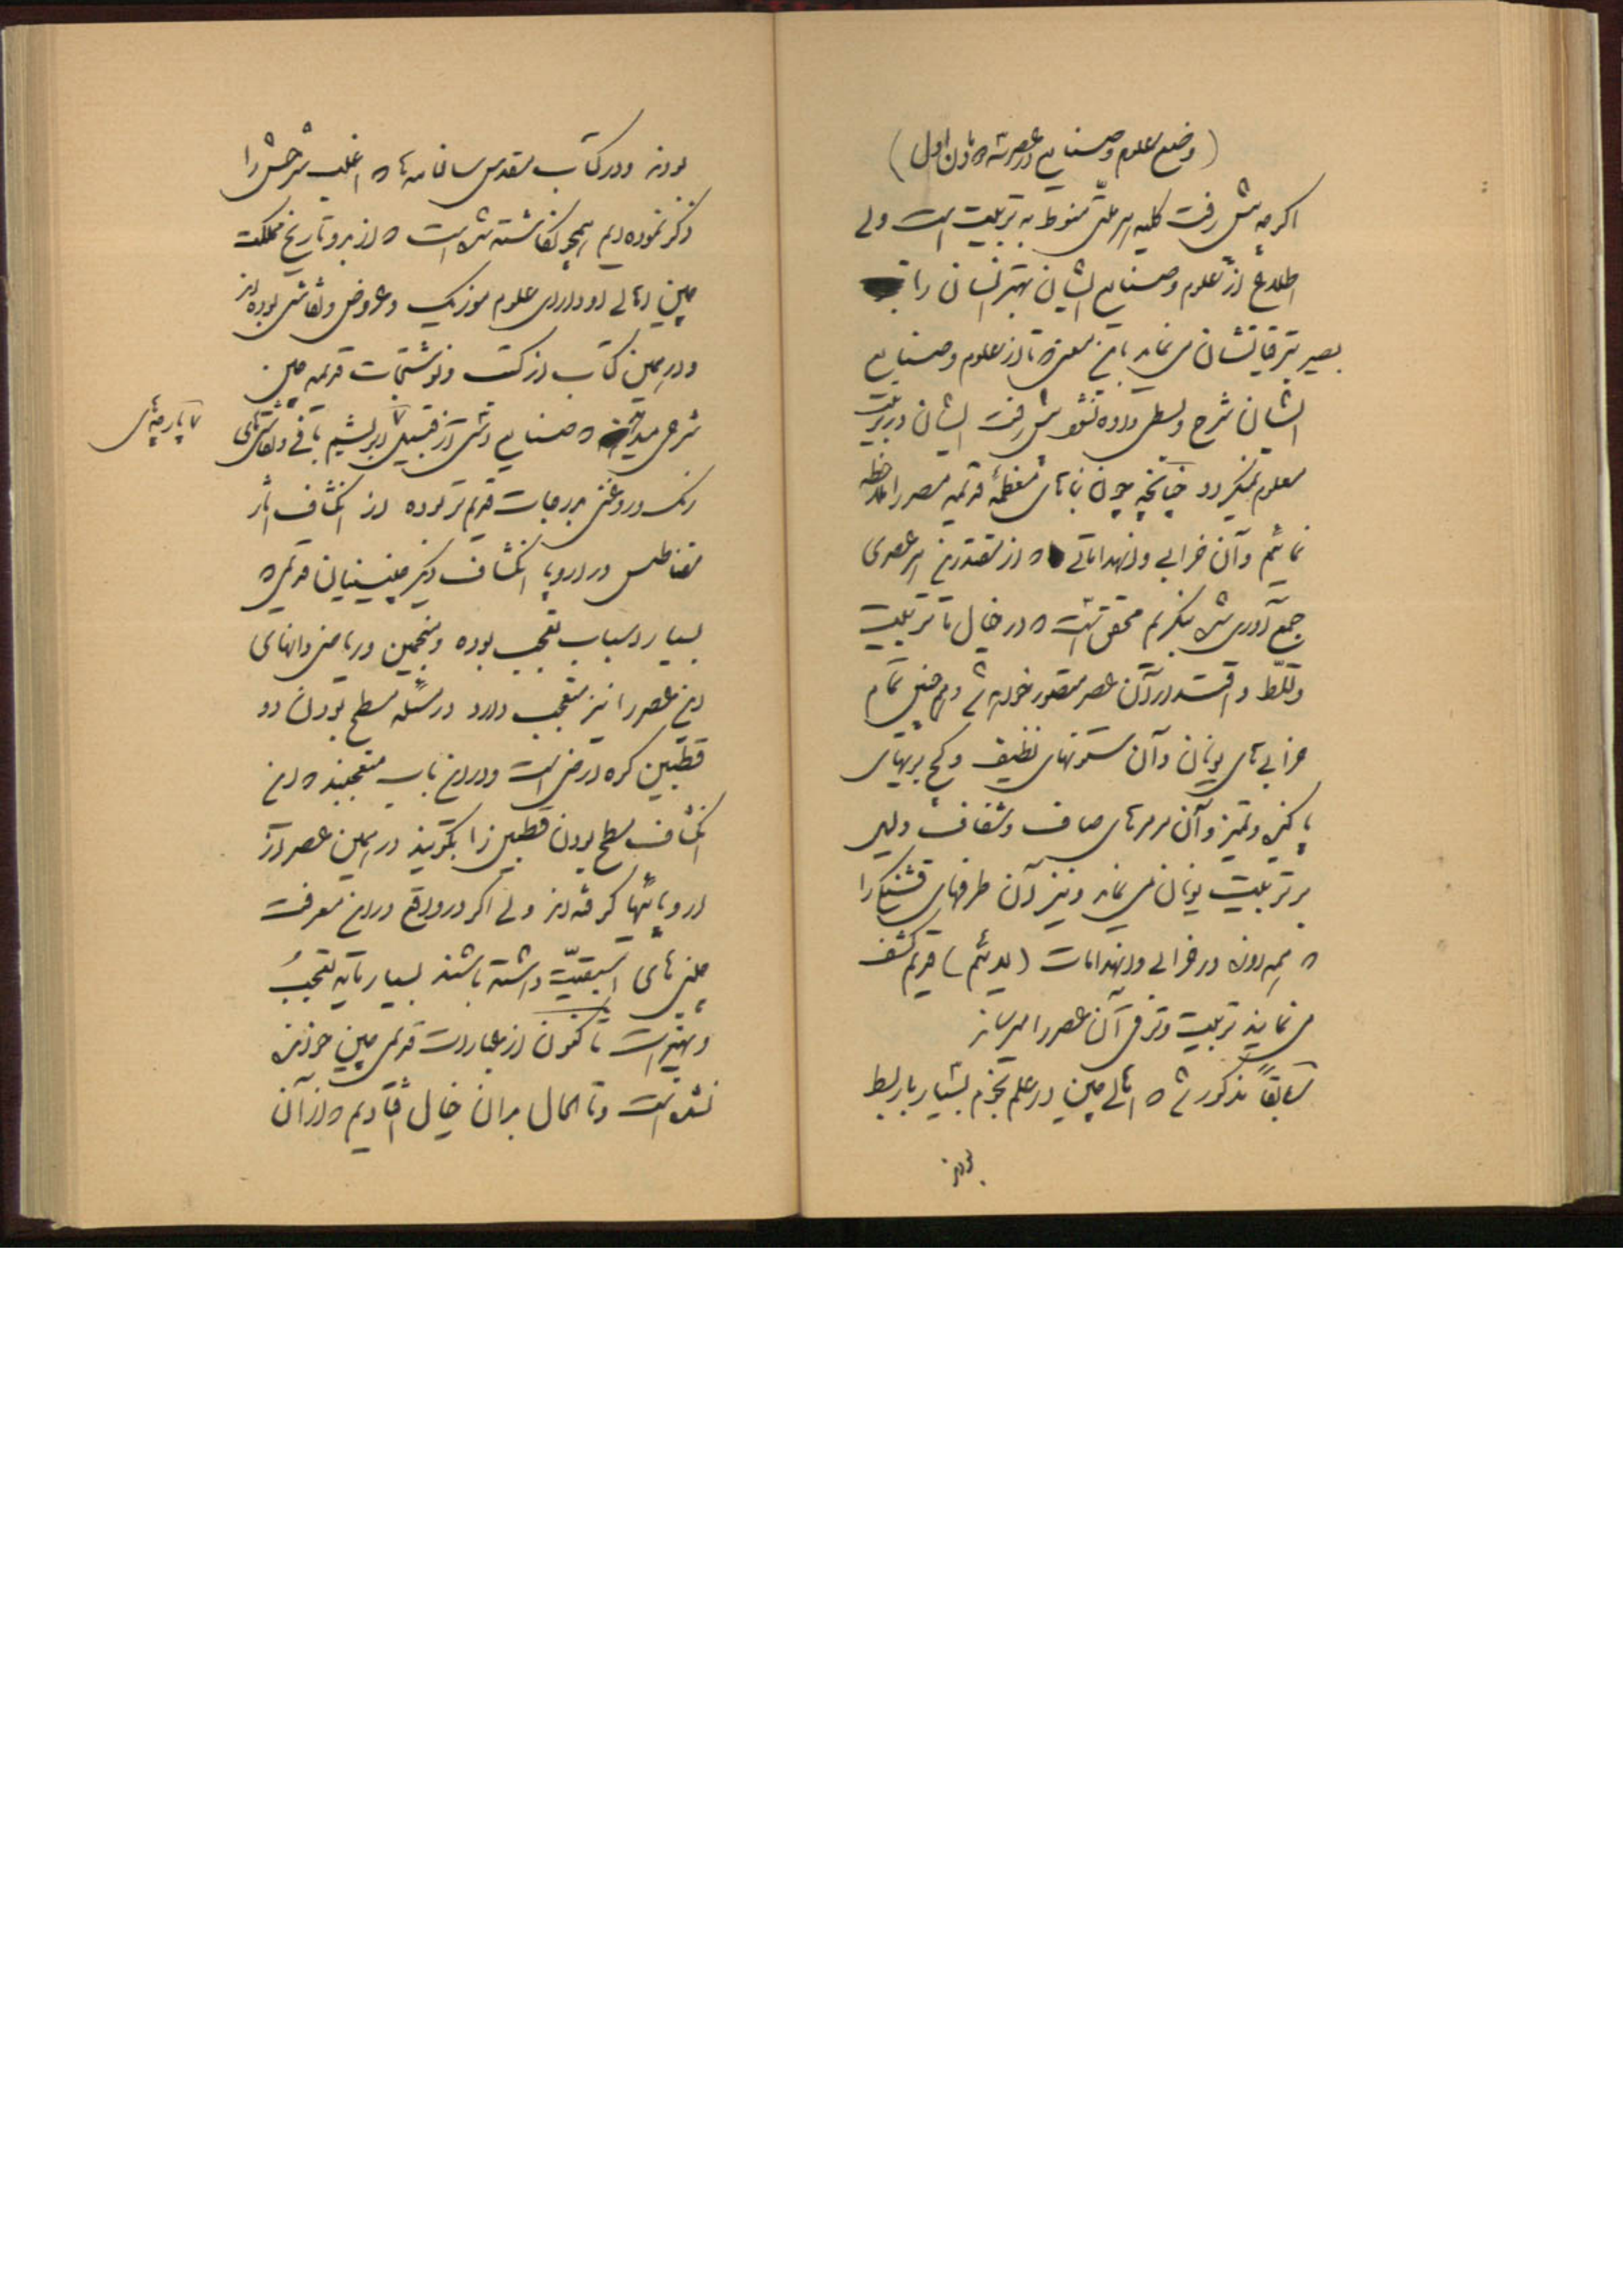 (وضع علوم و صنایع در عصر شه هان اول)
اکرچه پیش رفت کلیه هر ملتی منوط به تربیت است ولی
اطلاع از علوم و صنایع ایشان بهتر انسان را
بصیر بترقیاتشان می نماید باین معنی که تا از علوم و صنایع
ایشان شرح و بسطی داده نشود پیش رفت ایشان در تربیت
معلوم نمیکردد چنانچه چون بناهای معظمهٔ قدیمه مصر را ملاحظه
نمائیم و آن خرابی و انهداماتی که از مقتدرین هر عصری
جمع آوری شده بنکریم محقق است که در خیال ما تربیت
و تسلّط و اقتدار آن عصر متصور خواهد شد و همچنین تمام
خرابی های یونان و آن ستونهای نظیف و کچ بریهای
پاکیزه و تمیز و آن مرمرهای صاف و شفاف دلیل
بر تربیت یونان می نماید و نیز آن ظرفهای قشنکی را
که همه روزه در خرابی و انهدامات قدیم کشف
می نمایند تربیت و ترقی آن عصر را میرساند
سابقاً مذکور شد که اهالی چین در علم نجوم بسیار با ربط
بودند
بودند و در کتاب مقدس سالنامه ها که اغلب شرحش را
ذکر نموده ایم همچو نکاشته شده است که از بدو تاریخ مملکت
چین اهالی او دارای علوم موزیک و عروض و نقاشی بوده اند
و در همین کتاب از کتب و نوشتجات قدیمه چین
شرحی میداند که صنایع دستی از قبیل ابریشم بافی و نقاشیهای
۷ پارچهای
رنک و روغنی بدرجات قدیم تر بوده از انکشاف اثر
مغناطیس در اروپا انکشاف دیکر چینینیان قدیمی که
بسیار اسباب تعجب بوده و منجمین و ریاضی دانهای
این عصر را نیز متعجب دارد در مسئله مسطح بودن دو
قطبین کره ارض است و در این باب متعجبند که این
انکشاف مسطح بودن قطبین را بکویند در همین عصر از
اروپائیها کرفته اند ولی اکر در واقع در این معرفت
چینی های اسبقیّت داشته باشند بسیار مایه تعجب
و تحیر است تاکنون از عبارات قدیمی چین خوانده
نشده است و تا الحال بدان خیال افتادیم که از آن